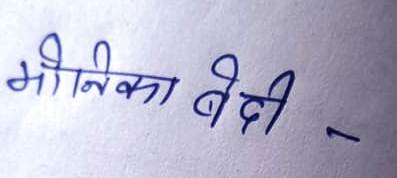 मोनिका बेदी -